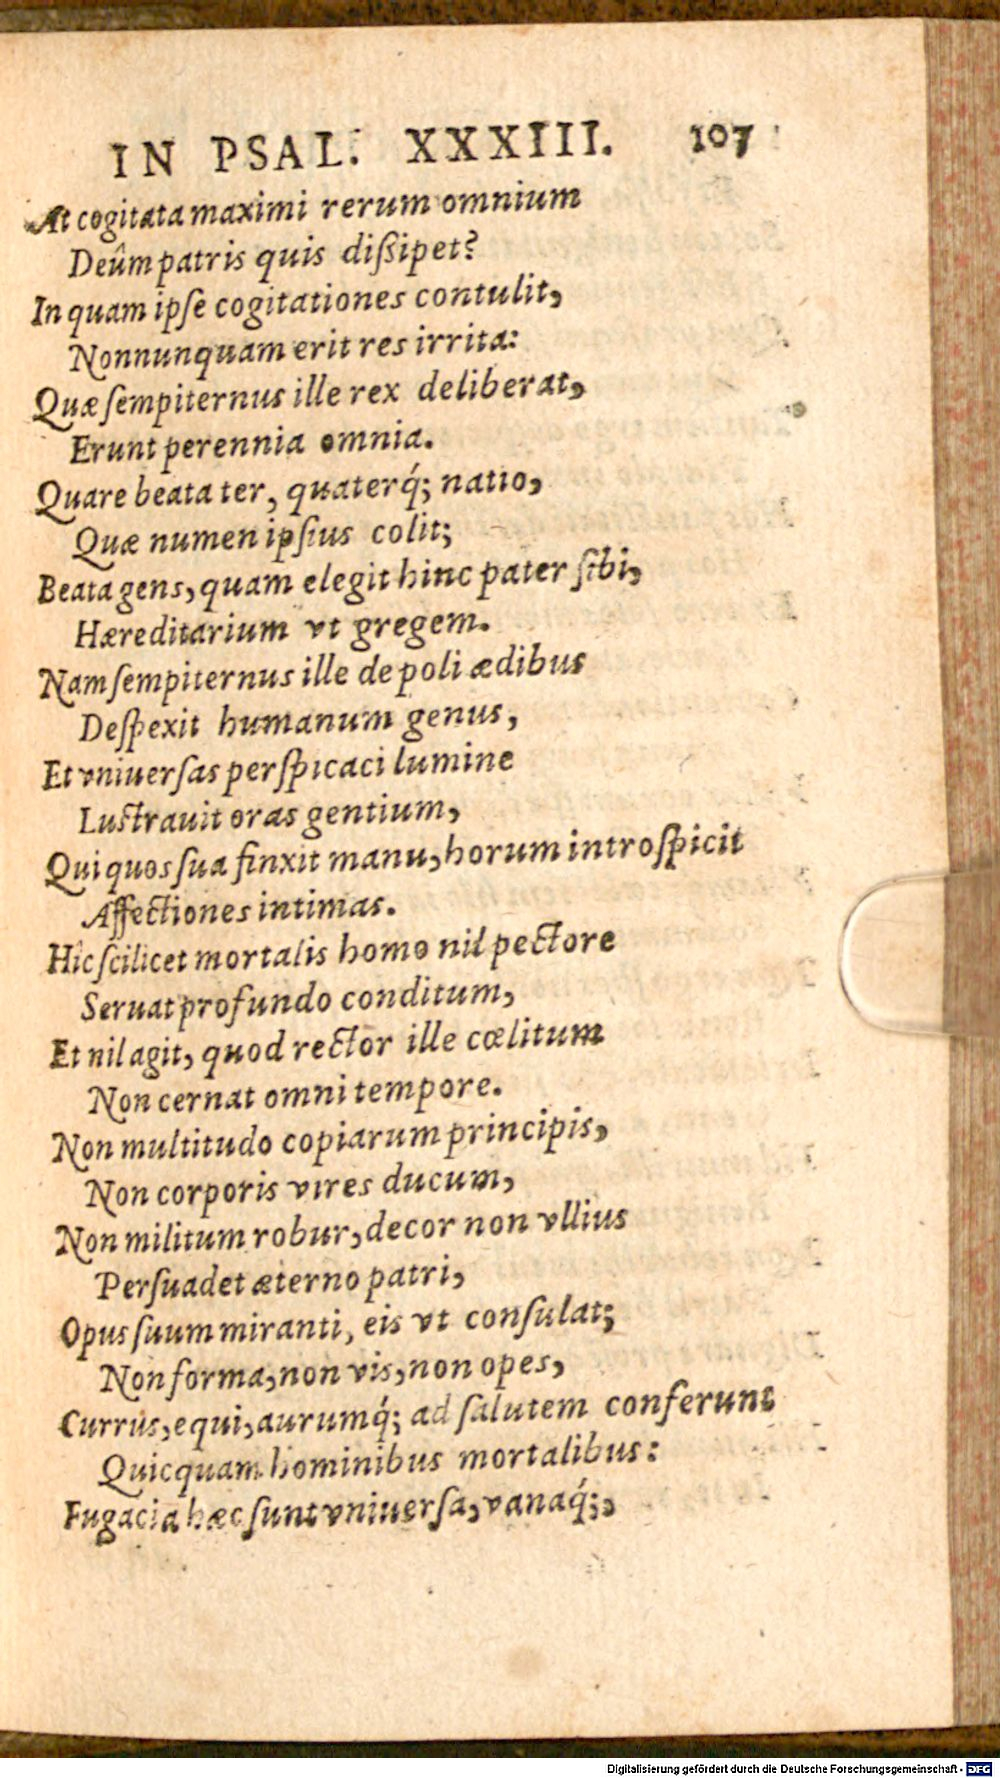 IN PSAL. XXXIII. 107
At cogitata maximi rerum omnium
Deûm patris quis dißipet?
In quam ipſe cogitationes contulit,
Nonnunquam erit res irrita:
Quæ ſempiternus ille rex deliberat,
Erunt perennia omnia.
Quare beata ter, quaterq́; natio,
Quæ numen ipſius colit;
Beata gens, quam elegit hinc pater ſibi,
Hæreditarium vt gregem.
Nam ſempiternus ille de poli ædibus
Deſpexit humanum genus,
Et vniuerſas perſpicaci lumine
Luſtrauit oras gentium,
Qui quos ſua finxit manu, horum introſpicit
Affectiones intimas.
Hic ſcilicet mortalis homo nil pectore
Seruat profundo conditum,
Et nil agit, quod rector ille cœlitum
Non cernat omni tempore.
Non multitudo copiarum principis,
Non corporis vires ducum,
Non militum robur, decor non vllius
Perſuadet æterno patri,
Opus ſuum miranti, eis vt conſulat;
Non forma, non vis, non opes,
Currus, equi, aurumq́; ad ſalutem conferunt
Quicquam hominibus mortalibus:
Fugacia hæc ſunt vniuerſa, vanaq́;,
Digitalisierung gefördert durch die Deutsche Forschungsgemeinschaft - DFG